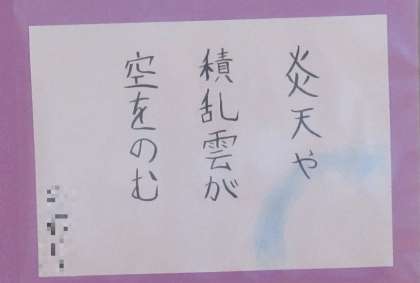 炎天や
積乱雲が
空をのむ